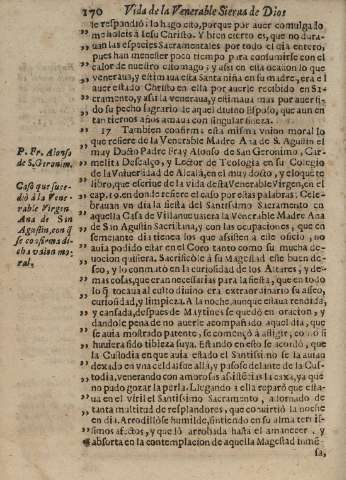 170 Vida de la Venerable Sierua de Dios
le respondiò: lo hago esto, porque por auer comulgado
me holeis à Iesu Christo. Y bien cierto es, que no dura-
uan las especies Sacramentales por todo el dia entero,
pues han menester poco tiempo para consumirse con el
calor de nuestro estomago; y assi en esta ocasion lo que
veneraua, y estimaua esta Santa niña en su madre, era el
auer estado Christo en ella por auerle recibido en Sa-
cramento, y assi la veneraua, y estimaua mas por auer si-
do su pecho sagrario de aquel diuino Esposo, que aun en
tan tiernos años amaua con singular fineza.
17 Tambien confirma esta misma vnion moral lo
que refiere de la Venerable Madre Ana de S. Agustin el
muy Docto Padre Fray Alonso de San Geronimo, Car-
melita Descalço, y Lector de Teologia en su Colegio
de la Vniuersidad de Alcalà, en el muy docto, y eloquēte
libro, que escriue de la vida desta Venerable Virgen, en el
cap. 19. en donde refiere el caso por estas palabras: Cele-
brauan vn dia la fiesta del Santissimo Sacramento en
aquella Casa de Villanueua era la Venerable Madre Ana
de San Agustin Sacristana, y con las ocupaciones, que en
semejante dia tienen los que assisten a esse oficio, no
auia podido estar en el Coro tanto como su mucha de-
uocion quisiera. Sacrificòle à su Magestad este buen de-
seo, y lo commutò en la curiosidad de los Altares, y de-
mas cosas, que eran necessarias para la fiesta, en que todo
lo q̃ tocaua al culto diuino era extraordinario su asseo,
curiosidad, y limpieza. A la noche, aunque estaua rendida,
y cansada, despues de Maytines se quedò en oracion, y
dandole pena de no auerle acompañado aquel dia, que
se auia mostrado patente, se començò à afligir, como si
huuiera sido tibieza suya. Estando en esto se acordò, que
la Custodia en que auia estado el Santissi no se la auian
dexado en vna celda fuese allà, y puso se delante de la Cus-
todia, venerando con amorosas ansias la caxa, ya què
no pudo gozar la perla. Llegando à ella reparò que esta-
ua en el viril el Santissimo Sacramento, adornado de
tanta multitud de resplandores, que conuirtiò la noche
en dia. Arrodillòse humilde, sintiendo en su alma terni-
simos afectos, y quedò arrobada hasta el amanecer, y
absorta en la contemplacion de aquella Magestad inmē-
sa,
P. Fr. Alonso
de S. Geronim.
Caso que suce-
diò à la Vene-
rable Virgen
Ana de San
Agustin, con q̃
se confirma di-
cha vnion mo-
ral,